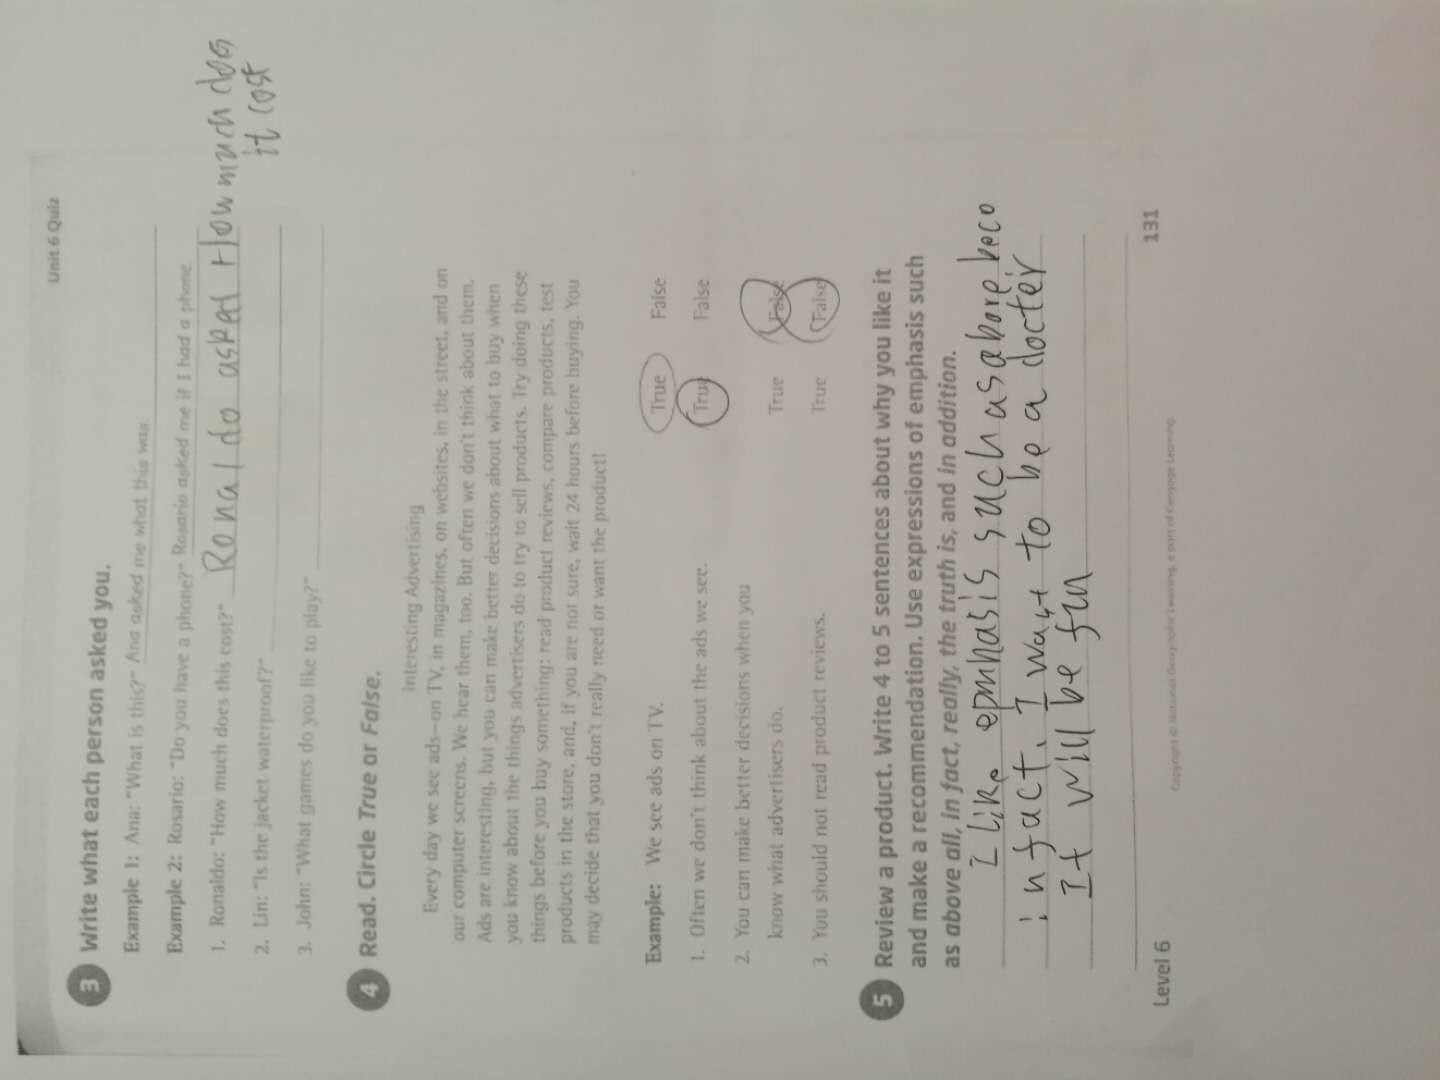 Unit 6 Quiz
3 Write what each person asked you.
Example 1: Ana: "What is this?" Ana asked me what this was.
Example 2: Rosario: "Do you have a phone?" Rosario asked me if I had a phone.
1. Ronaldo: "How much does this cost?" Ronaldo asked How much does
it cost
2. Lin: "Is the jacket waterproof?"
3. John: "What games do you like to play?"
4 Read. Circle True or False.
Interesting Advertising
Every day we see ads—on TV, in magazines, on websites, in the street, and on
our computer screens. We hear them, too. But often we don't think about them.
Ads are interesting, but you can make better decisions about what to buy when
you know about the things advertisers do to try to sell products. Try doing these
things before you buy something: read product reviews, compare products, test
products in the store, and, if you are not sure, wait 24 hours before buying. You
may decide that you don't really need or want the product!
Example: We see ads on TV. True False
1. Often we don't think about the ads we see. True False
2. You can make better decisions when you
know what advertisers do. True False
3. You should not read product reviews. True False
5 Review a product. Write 4 to 5 sentences about why you like it
and make a recommendation. Use expressions of emphasis such
as above all, in fact, really, the truth is, and in addition.
I like epmhasis such as above beco
in fact. I want to be a docter
It will be fun
Level 6
Copyright © National Geographic Learning, a part of Cengage Learning
131